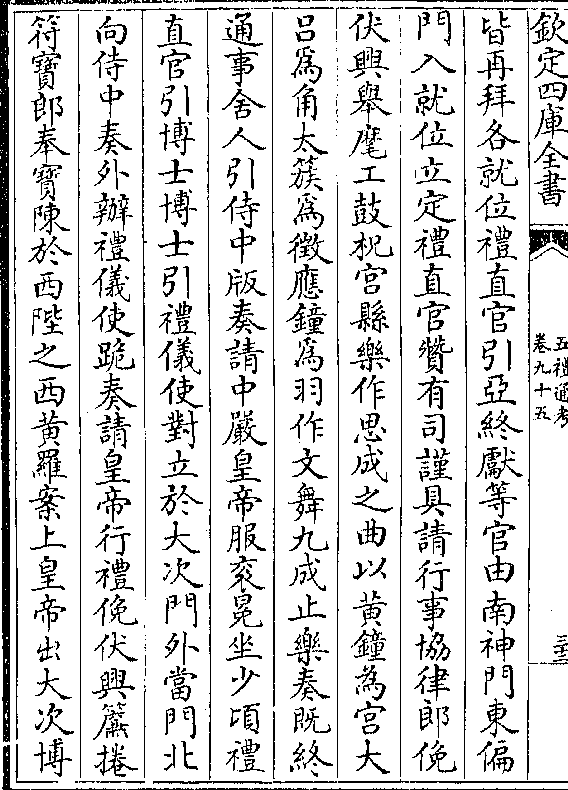 欽定四庫全書
五禮通考
卷九十五
三三
皆再拜各就位禮直官引亞終獻等官由南神門東偏
門入就位立定禮直官贊有司謹具請行事協律郎俛
伏興舉麾工鼓柷宮縣樂作思成之曲以黃鐘為宮大
呂為角太簇為徵應鐘為羽作文舞九成止樂奏既終
通事舍人引侍中版奏請中嚴皇帝服衮冕坐少頃禮
直官引博士博士引禮儀使對立於大次門外當門北
向侍中奏外辦禮儀使跪奏請皇帝行禮俛伏興簾捲
符寶郎奉寶陳於西陛之西黃羅案上皇帝出大次博